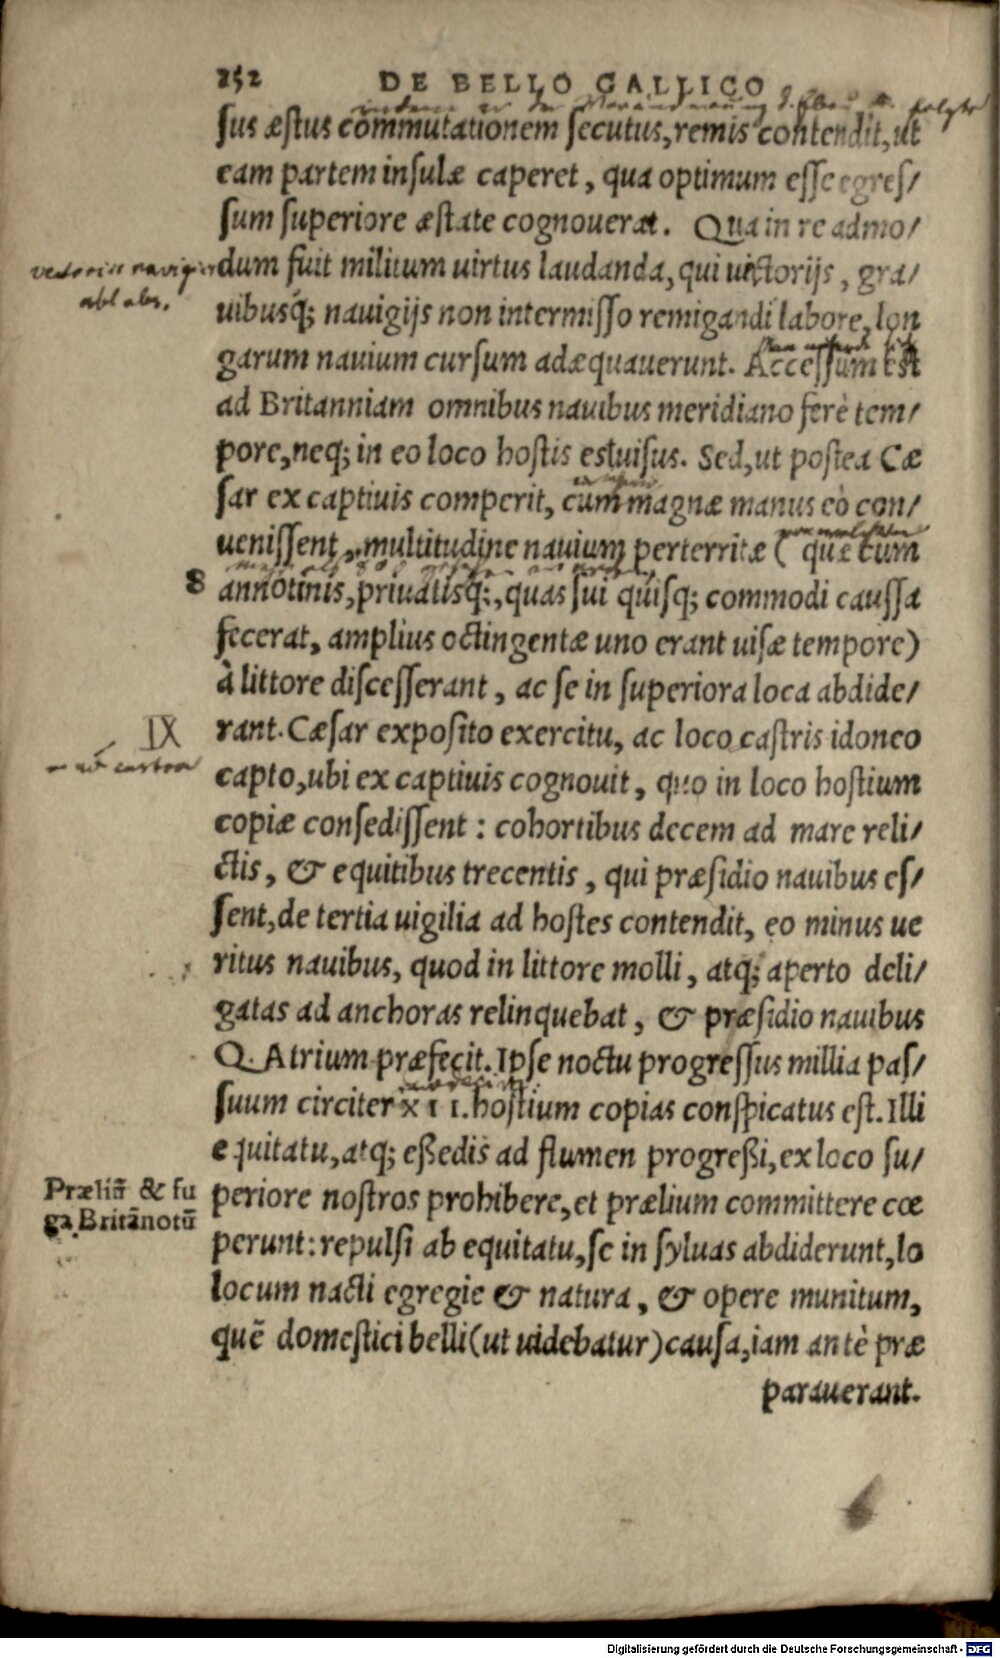 252 DE BELLO GALLICO
sus æstus commutationem secutus, remis contendit, ut
eam partem insulæ caperet, qua optimum esse egres/
sum superiore æstate cognouerat. Qua in re admo/
dum fuit militum uirtus laudanda, qui uectorijs, gra/
abl abs.
uibusq́; nauigijs non intermisso remigandi labore, lon
garum nauium cursum adæquauerunt. Accessum est
ad Britanniam omnibus nauibus meridiano ferè tem/
pore, neq; in eo loco hostis est uisus. Sed, ut postea Cæ
sar ex captiuis comperit, cum magnæ manus eò con/
uenissent, multitudine nauium perterritæ ( quæ cum
8 annotinis, priuatisq́;, quas sui quisq; commodi caussa
fecerat, amplius octingentæ uno erant uisæ tempore)
à littore discesserant, ac se in superiora loca abdide/
IX
rant. Cæsar exposito exercitu, ac loco castris idoneo
capto, ubi ex captiuis cognouit, quo in loco hostium
copiæ consedissent : cohortibus decem ad mare reli/
ctis, & equitibus trecentis, qui præsidio nauibus es/
sent, de tertia uigilia ad hostes contendit, eo minus ue
ritus nauibus, quod in littore molli, atq; aperto deli/
gatas ad anchoras relinquebat, & præsidio nauibus
Q. Atrium præfecit. Ipse noctu progressus millia pas/
suum circiter XII. hostium copias conspicatus est. Illi
equitatu, atq; eßedis ad flumen progreßi, ex loco su/
Præliũ & fu
ga Britãnorũ
periore nostros prohibere, et prælium committere cœ
perunt: repulsi ab equitatu, se in syluas abdiderunt, lo
locum nacti egregie & natura, & opere munitum,
quẽ domestici belli (ut uidebatur) causa, iam antè præ
parauerant.
Digitalisierung gefördert durch die Deutsche Forschungsgemeinschaft - DFG